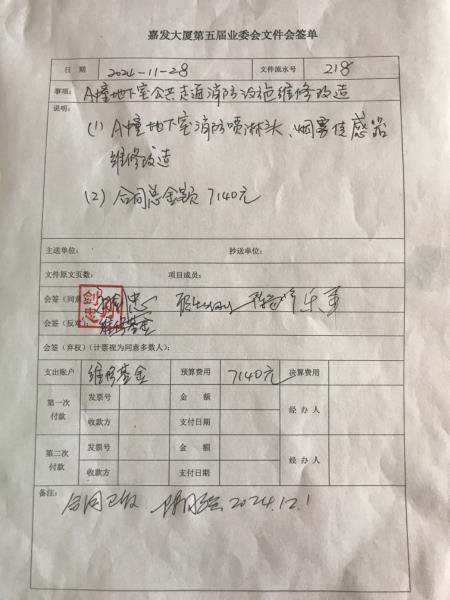 嘉发大厦第五届业委会文件会签单
日 期 2024-11-28 文件流水号 218
事项: A幢地下室公共走道消防设施维修改造
说明:
(1) A幢地下室消防喷淋头、烟雾传感器
维修改造
(2) 合同总金额 7140元
主送单位: 抄送单位:
文件原文页数: 项目成员:
会签(同意
会签(反对): 维修基金
会签(弃权)(计票视为同意多数人):
支出账户 维修基金 预算费用 7140元 决算费用
第一次付款 发票号 金 额 经 办 人
收款方 支付日期
第二次付款 发票号 金 额 经 办 人
收款方 支付日期
备注:
合同已收 2024.12.1